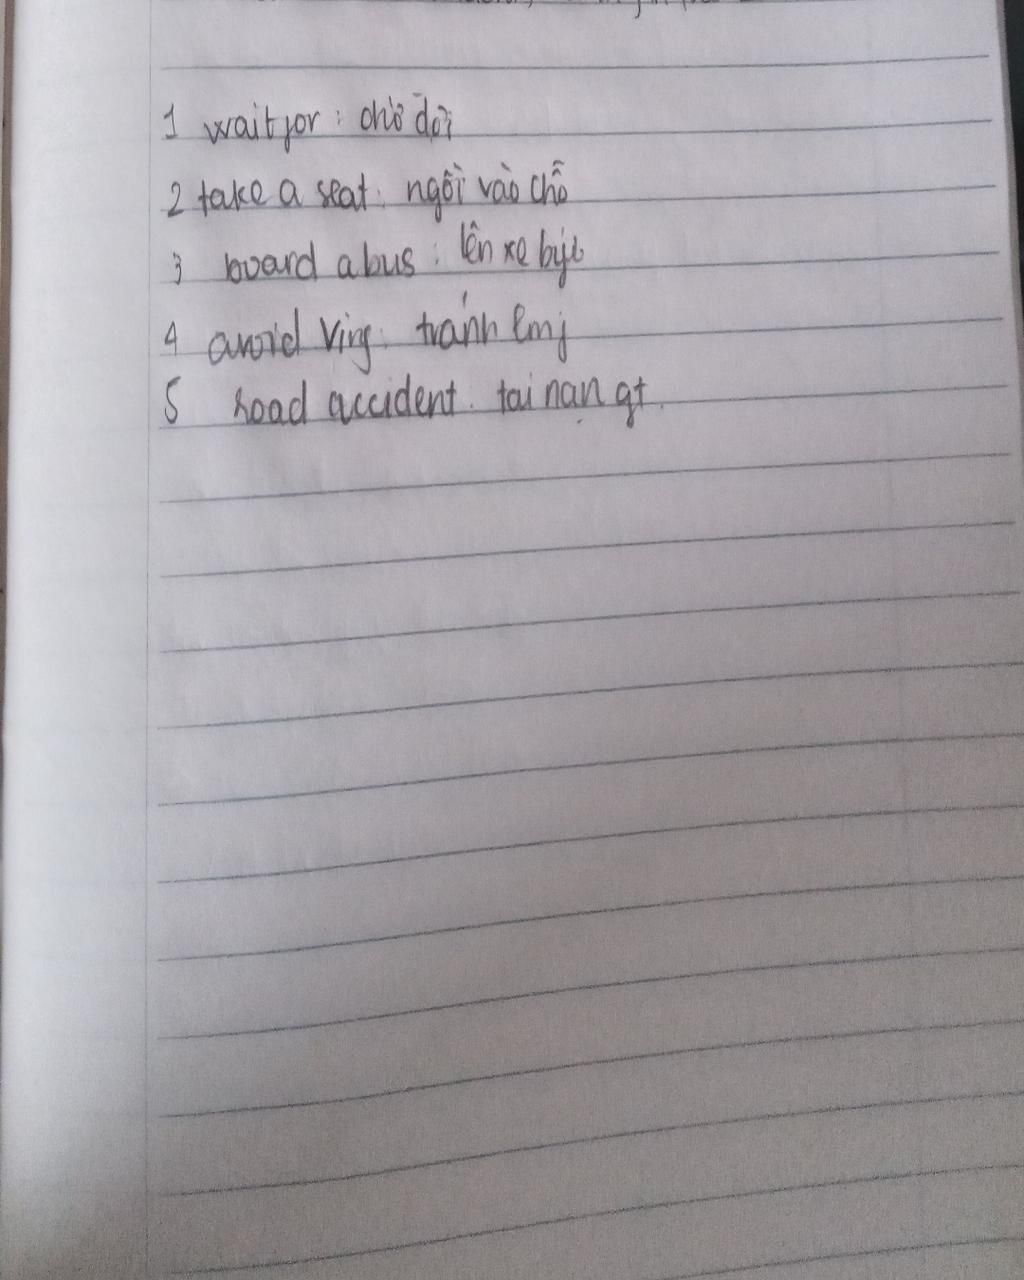 1 wait for : chờ đợi
2 take a seat : ngồi vào chỗ
3 board a bus : lên xe buýt
4 avoid Ving : tránh
5 road accident . tai nạn gt.